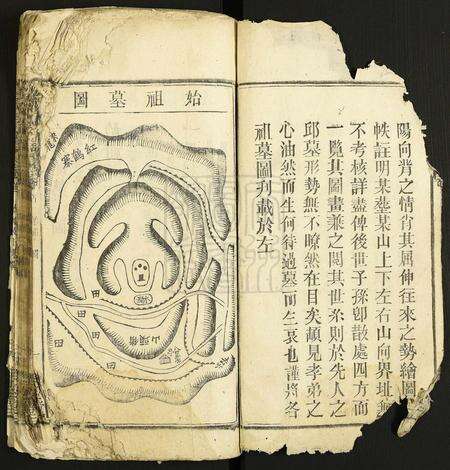 陽向背之情省其屈伸往來之勢繪圖
帙註明某塋某山上下左右山向界址無
不考核詳盡俾後世子孫卽散處四方而
一覽其圖畫兼之閱其世系則於先人之
邱墓形勢無不瞭然在目矣見孝弟之
心油然而生何待過墓而生哀也謹將各
祖墓圖刋載於左
始祖墓圖
紅鶴寨
田
田
田
田
田